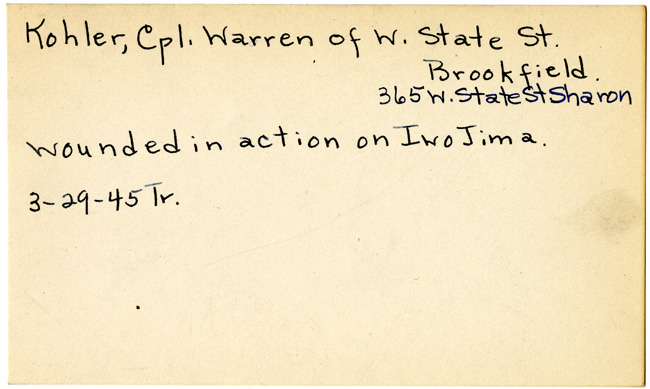 Kohler, Cpl. Warren of W. State St.
Brookfield.
365 W. State St Sharon
wounded in action on Iwo Jima.
3-29-45 Tr.